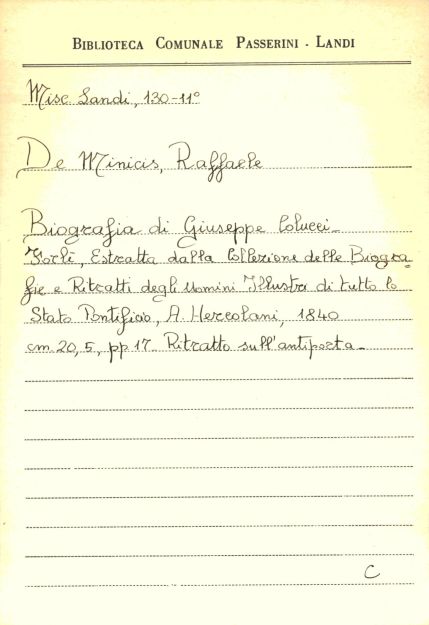 BIBLIOTECA COMUNALE PASSERINI - LANDI
Misc. Landi, 130-11°
De Minicis, Raffaele
Biografia di Giuseppe Colucci_
Forlì, Estratta dalla Collezione delle Biogra
fie e Ritratti degli Uomini Illustri di tutto lo
Stato Pontificio, A. Hercolani, 1840
cm. 20,5, pp 17. Ritratto sull'antiporta_
C